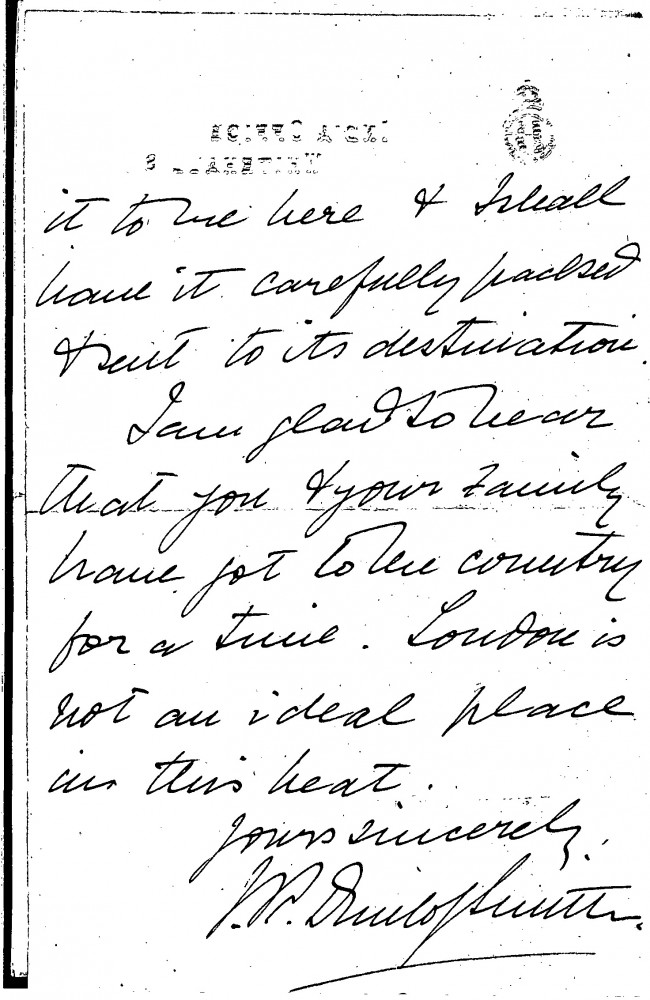 INDIA OFFICE
WHITEHALL
it to me here & I shall
have it carefully packed
& sent to its destination.
I am glad to hear
that you & your family
have got to the country
for a time. London is
not an ideal place
in this heat.
Yours sincerely,
J.R. Dunlop Smith.